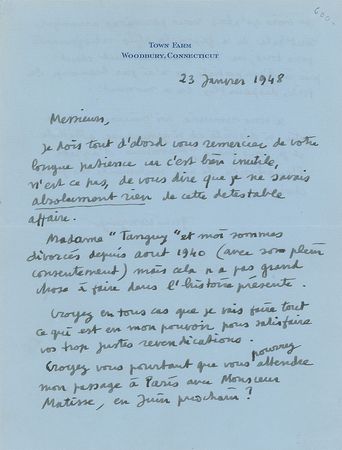 600-
TOWN FARM
WOODBURY, CONNECTICUT
23 Janvier 1948
Messieurs,
Je dois tout d'abord vous remercier de votre
longue patience car c'est bien inutile,
n'est ce pas, de vous dire que je ne savais
absolument rien de cette detestable
affaire.
Madame "Tanguy" et moi sommes
divorcés depuis aout 1940 (avec son plein
consentement) mais cela n'a pas grand
chose à faire dans l'histoire présente.
Croyez en tous cas que je vais faire tout
ce qui est en mon pouvoir pour satisfaire
vos trop justes revendications.
Croyez vous pourtant que vous pourrez attendre
mon passage à Paris avec Monsieur
Matisse, en Juin prochain?